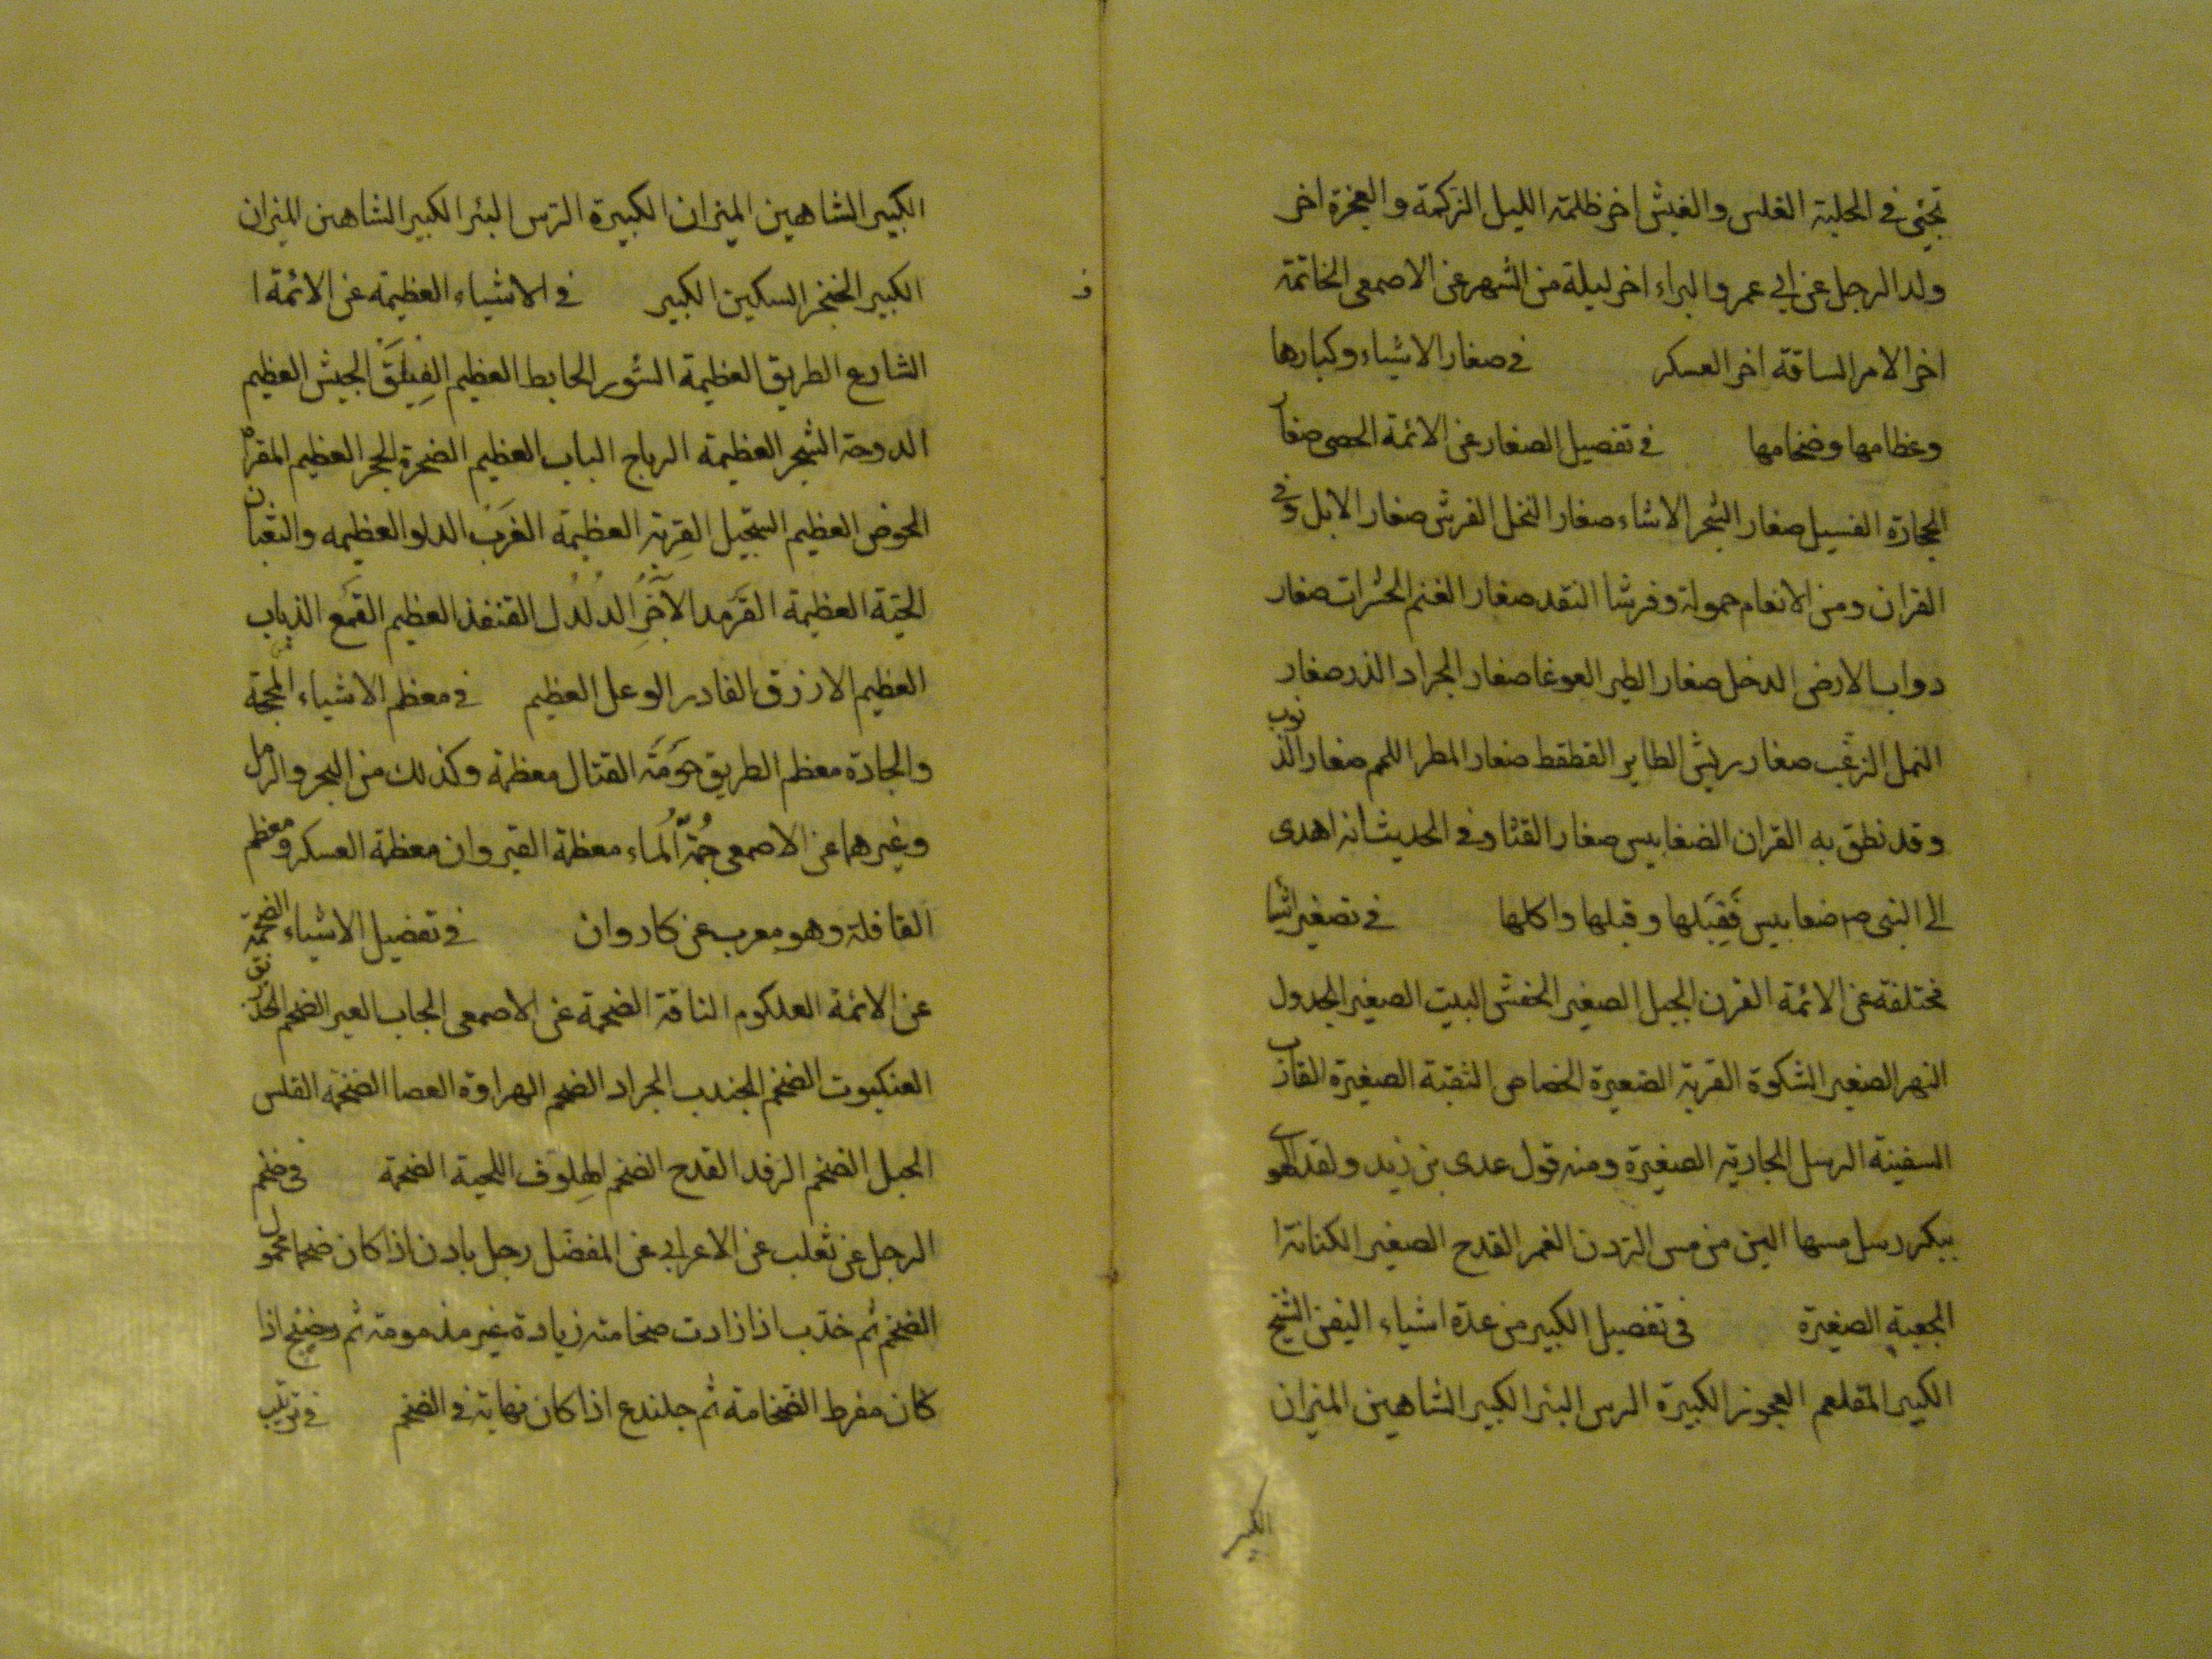 تجئ في الحلبة الغلس والغبش اخر ظلمة الليل الزكمة والعجزة اخر
ولد الرجل عن ابي عمرو البراء اخر ليلة من الشهر عن الاصمعي الخاتمة
اخر الامر الساقة اخر العسكر في صغار الاشياء وكبارها
وعظامها وضخامها في تفصيل الصغار عن الائمة الحصى صغار
الحجارة الفسيل صغار الشجر الاشاء صغار النخل الفرش صغار الابل وفي
القران ومن الانعام حمولة وفرشا النقد صغار الغنم الحشرات صغار
دواب الارض الدخل صغار الطير الغوغا صغار الجراد الذر صغار
النمل الزغب صغار ريش الطاير القطقط صغار المطر اللمم صغار الذنوب
وقد نطق به القران الضغابيس صغار القثاء وفي الحديث انه اهدى
الى النبي ص ضغابيس فَقِبَلها وقبلها واكلها في تصغير اشيا
مختلفة عن الائمة القرن الجبل الصغير الحفش البيت الصغير الجدول
النهر الصغير الشكوة القربة الصغيرة الخصاص الثقبة الصغيرة القارب
السفينة الرسل الجارية الصغيرة ومنه قول عدى بن زيد ولقد الهو
ببكر رسل مسها الين من مس الردن الغمر القدح الصغير الكنانة ا
الجعبة الصغيرة في تفصيل الكبير من عدة اشياء اليفن الشيخ
الكبير القلعم العجوز الكبيرة الرس البئر الكبير الشاهين الميزان
الكبير
الكبير الشاهين الميزان الكبيرة الرس البئر الكبير الشاهين الميزان
الكبير الخنجر السكين الكبير في الاشياء العظيمة عن الائمة ا
الشارع الطريق العظيمة السور الحايط العظيم الفيلق الجيش العظيم
الدوحة الشجر العظيمة الرتاج الباب العظيم الصخرة الحجر العظيم المقراة
الحوض العظيم السجيل القِربة العظيمة الغَرَب الدلو العظيمه والثعبان
الحية العظيمة القَرمد الآجُر الدُلدُل القنفذ العظيم القمَع الذباب
العظيم الازرق الفادر الوعل العظيم في معظم الاشياء المحجة
والجادة معظم الطريق حَومَة القتال معظمة وكذلك من البحر والرمل
وغيرهما عن الاصمعي جُمّة الماء معظمة القيروان معظمة العسكر ومعظم
القافلة وهو معرب عن كاروان في تفضيل الاشياء الضخمة
عن الائمة العلكوم الناقة الضخمة عن الاصمعي الجاب العير الضخم الخدرنق
العنكبوت الضخم الجندب الجراد الضخم الهراوة العصا الضخمة القلس
الحبل الضخم الرفد القدح الضخم الهِلوف اللحية الضخمة في ضخم
الرجل عن ثعلب عن الاعرابي عن المفضل رجل بادن اذا كان ضخما محمود
الضخم ثم خدب اذا زادت ضخامته زيادة غير مذمومة ثم اذا
كان مفرط الضخامة ثم جلندع اذا كان نهاية في الضخم في ترتيب